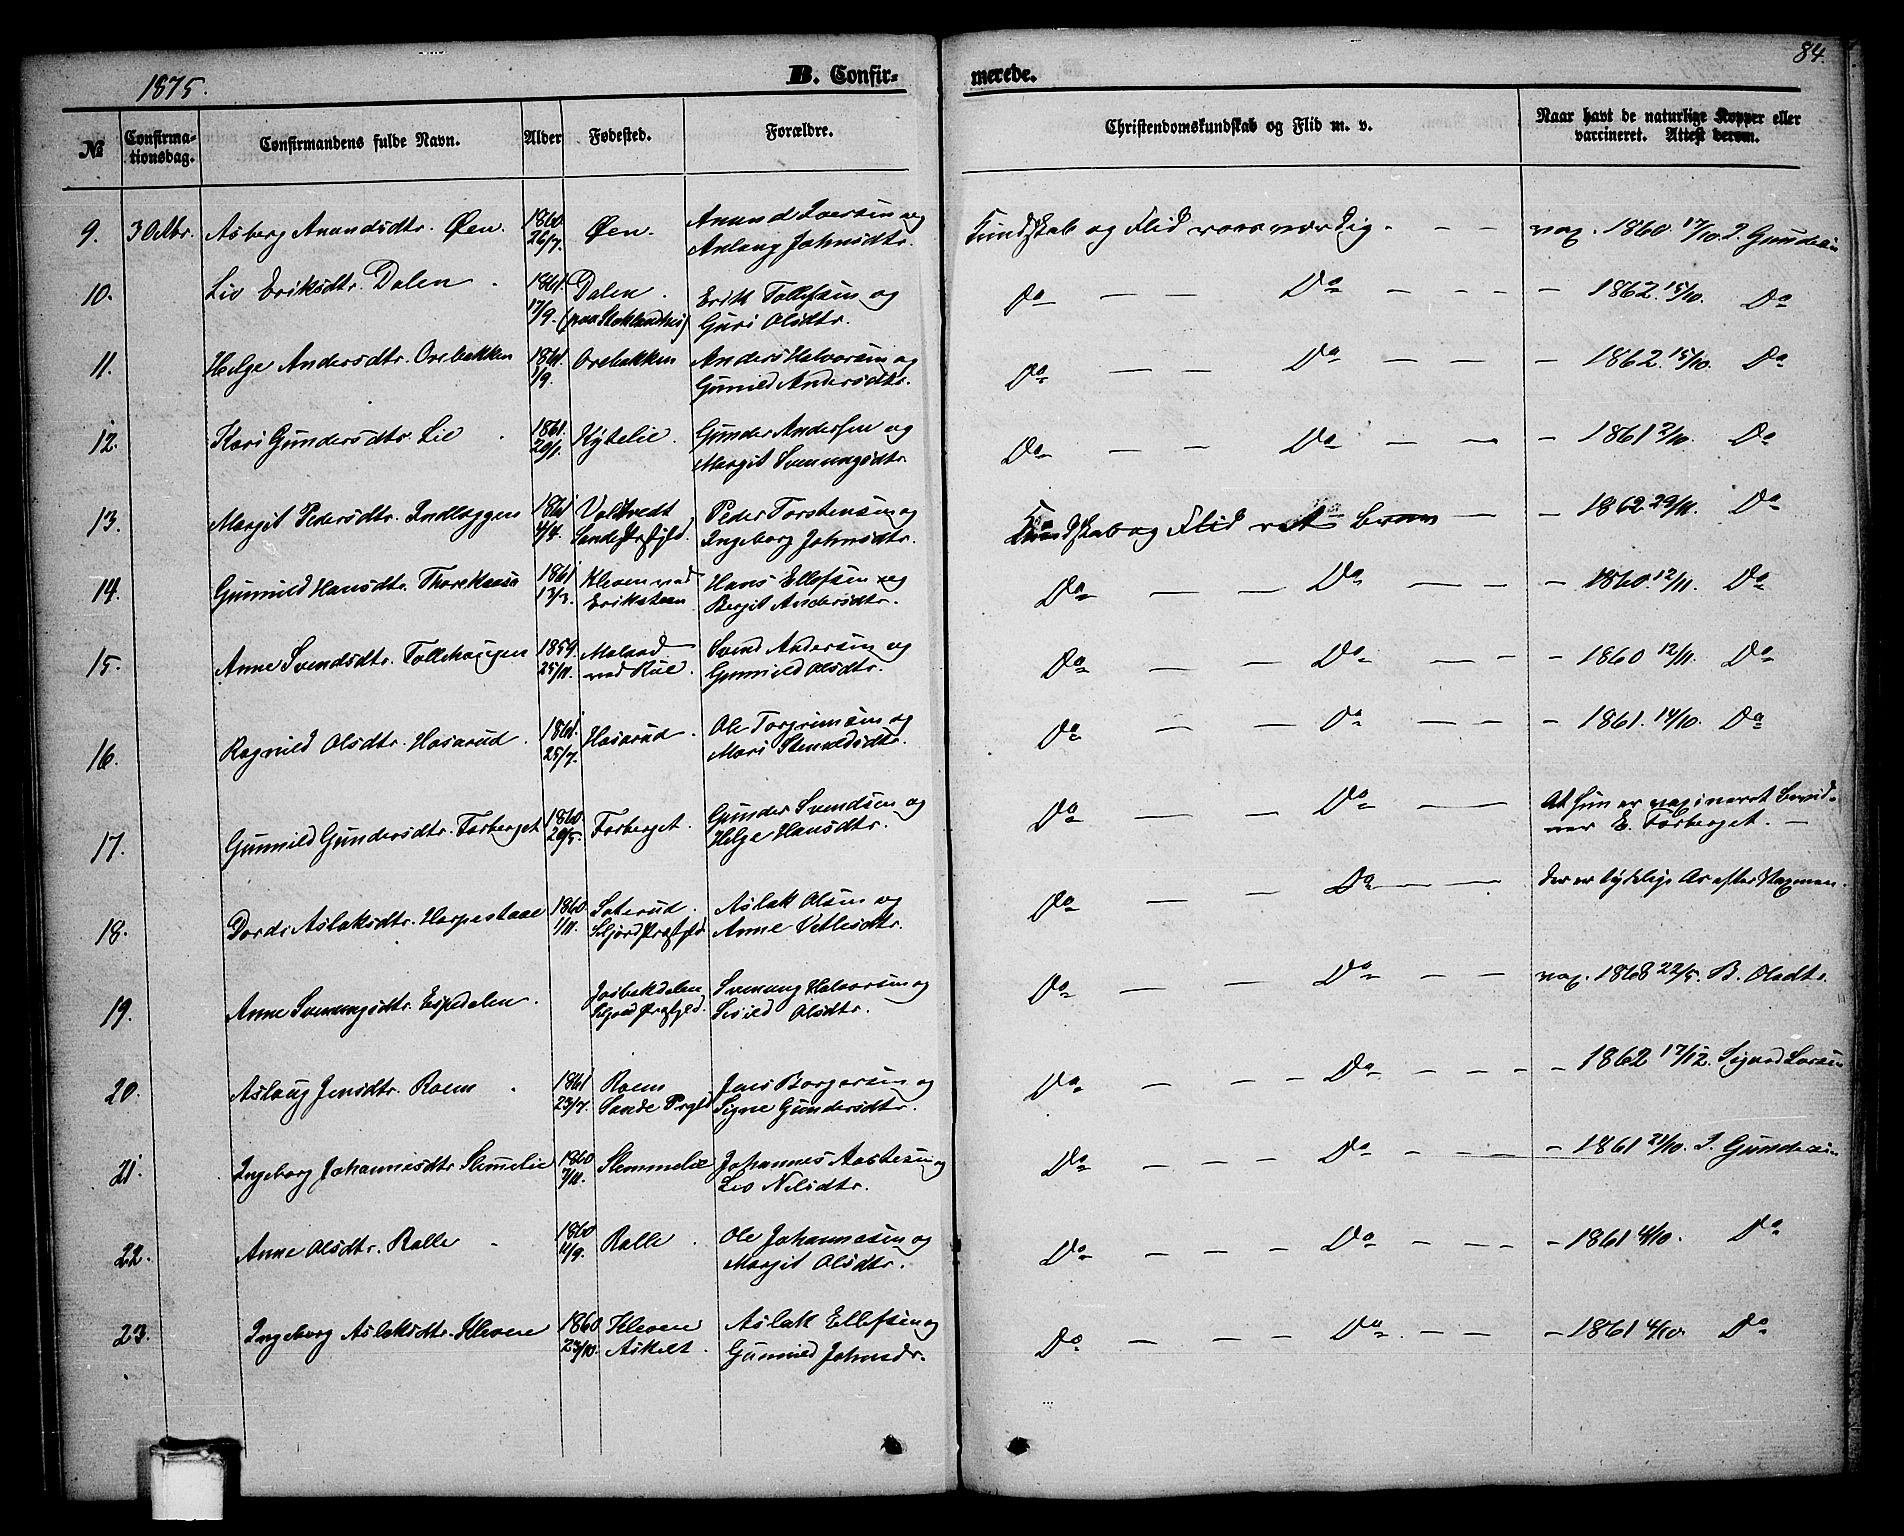 84.
1875.
B. Confir-
merede.
№
Confirma-
tionsdag.
Confirmandens fulde Navn.
Alder
Fødested.
Forældre.
Christendomskundskab og Flid m. v.
Naar havt de naturlige Kopper eller
vaccineret. Attest derom.
9. 30 Asberg Anundsdtr. Øen. 1860 26/7. Øen. Anund Iversen og
Aslaug Johnsdtr.
Kundskab og Flid roosværdig. — — vax. 1860 17/10. I. Gundersen
10. Liv Eriksdtr. Dalen 1861 17/9. Dalen. Erik Tollefsen og
Guri Olsdtr.
Do — — Do — — — 1862. 15/10. Do
11. Helge Andersdtr. Orebakken 1861. 1/9. Orebakken Anders Halvorsen og
Gunild Andersdtr.
Do — — Do — — — 1862. 15/10. Do
12. Kari Gundersdtr. Lie 1861. 20/1. Kytelie. Gunder Andersen og
Margit Svenungsdtr.
Do — — Do — — — 1861 2/10. Do
13. Margit Pedersdtr. Indlæggen 1861 4/4. Valtvedt
Sande Peder Torstensen og
Ingeborg Johnsdtr.
Kundskab og Flid ret — — 1862 29/11. Do
14. Gunnild Hansdtr. 1861 13/3. Kleven ved
Eriksteen Hans Ellefsen og
Bergit Andersdtr.
Do — — Do — — — 1860. 12/11. Do
15. Anne Svendsdtr. Tollehaugen 1859. 25/11. ved Rue. Svend Andersen og
Gunnild Olsdtr.
Do — — Do — — — 1860 12/11. Do
16. Ragnild Olsdtr. Hasarud. 1861. 25/7. Hasarud. Ole Torgrimsen og
Mari
Do — — Do — — — 1861. 14/10. Do
17. Gunnild Gundersdtr. Forberget 1860 20/5. Forberget. Gunder Svendsen og
Helge Hansdtr.
Do — — Do — — At hun er vaxineret bevid-
ner E. Forberget. —
18. Dorde Aslaksdtr. 1860. 1/11. Aslak Olsen og
Anne Vetlesdtr.
Do — Do — — Der er tydelige Ar efter
19. Anne Svenungsdtr. Espedalen. Svenung Halvorsen og
Olsdtr.
Do — — Do — — vax. 1868 22/5. B. Olsdtr.
20. Aslaug Jensdtr. Roem 1861 23/7. Roem
Sande Prgld. Jens Borgersen og
Signe Gundersdtr.
Do — — Do — — — — 1862 17/12.
21. Ingeborg Johannesdtr. 1860 7/11. Slemmelie Johannes og
Liv Nilsdtr.
Do — — — Do — — — — 1861 21/10. I. Gundersen
22. Anne Olsdtr. Ralle 1860 Ralle. Ole Johannesen og
Margit Olsdtr.
Do — — — Do — — — — 1861 4/10. Do
23. Ingeborg Aslaksdtr. Kleven 1860 23/10. Kleven
Askelt. Aslak Ellefsen og
Gunnild Johnsdr.
Do — — — Do. — — — 1861 4/10. Do